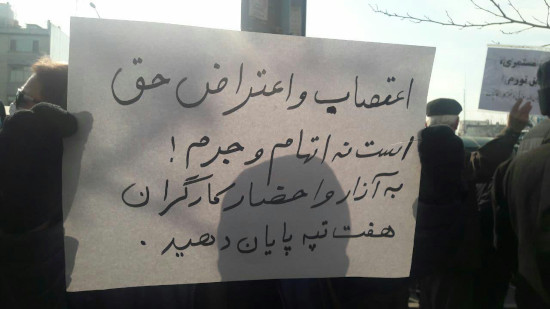 اعتصاب و اعتراض حق
است نه اتهام و جرم !
به آزار و احضار کارگران
هفت تپه پایان دهید .